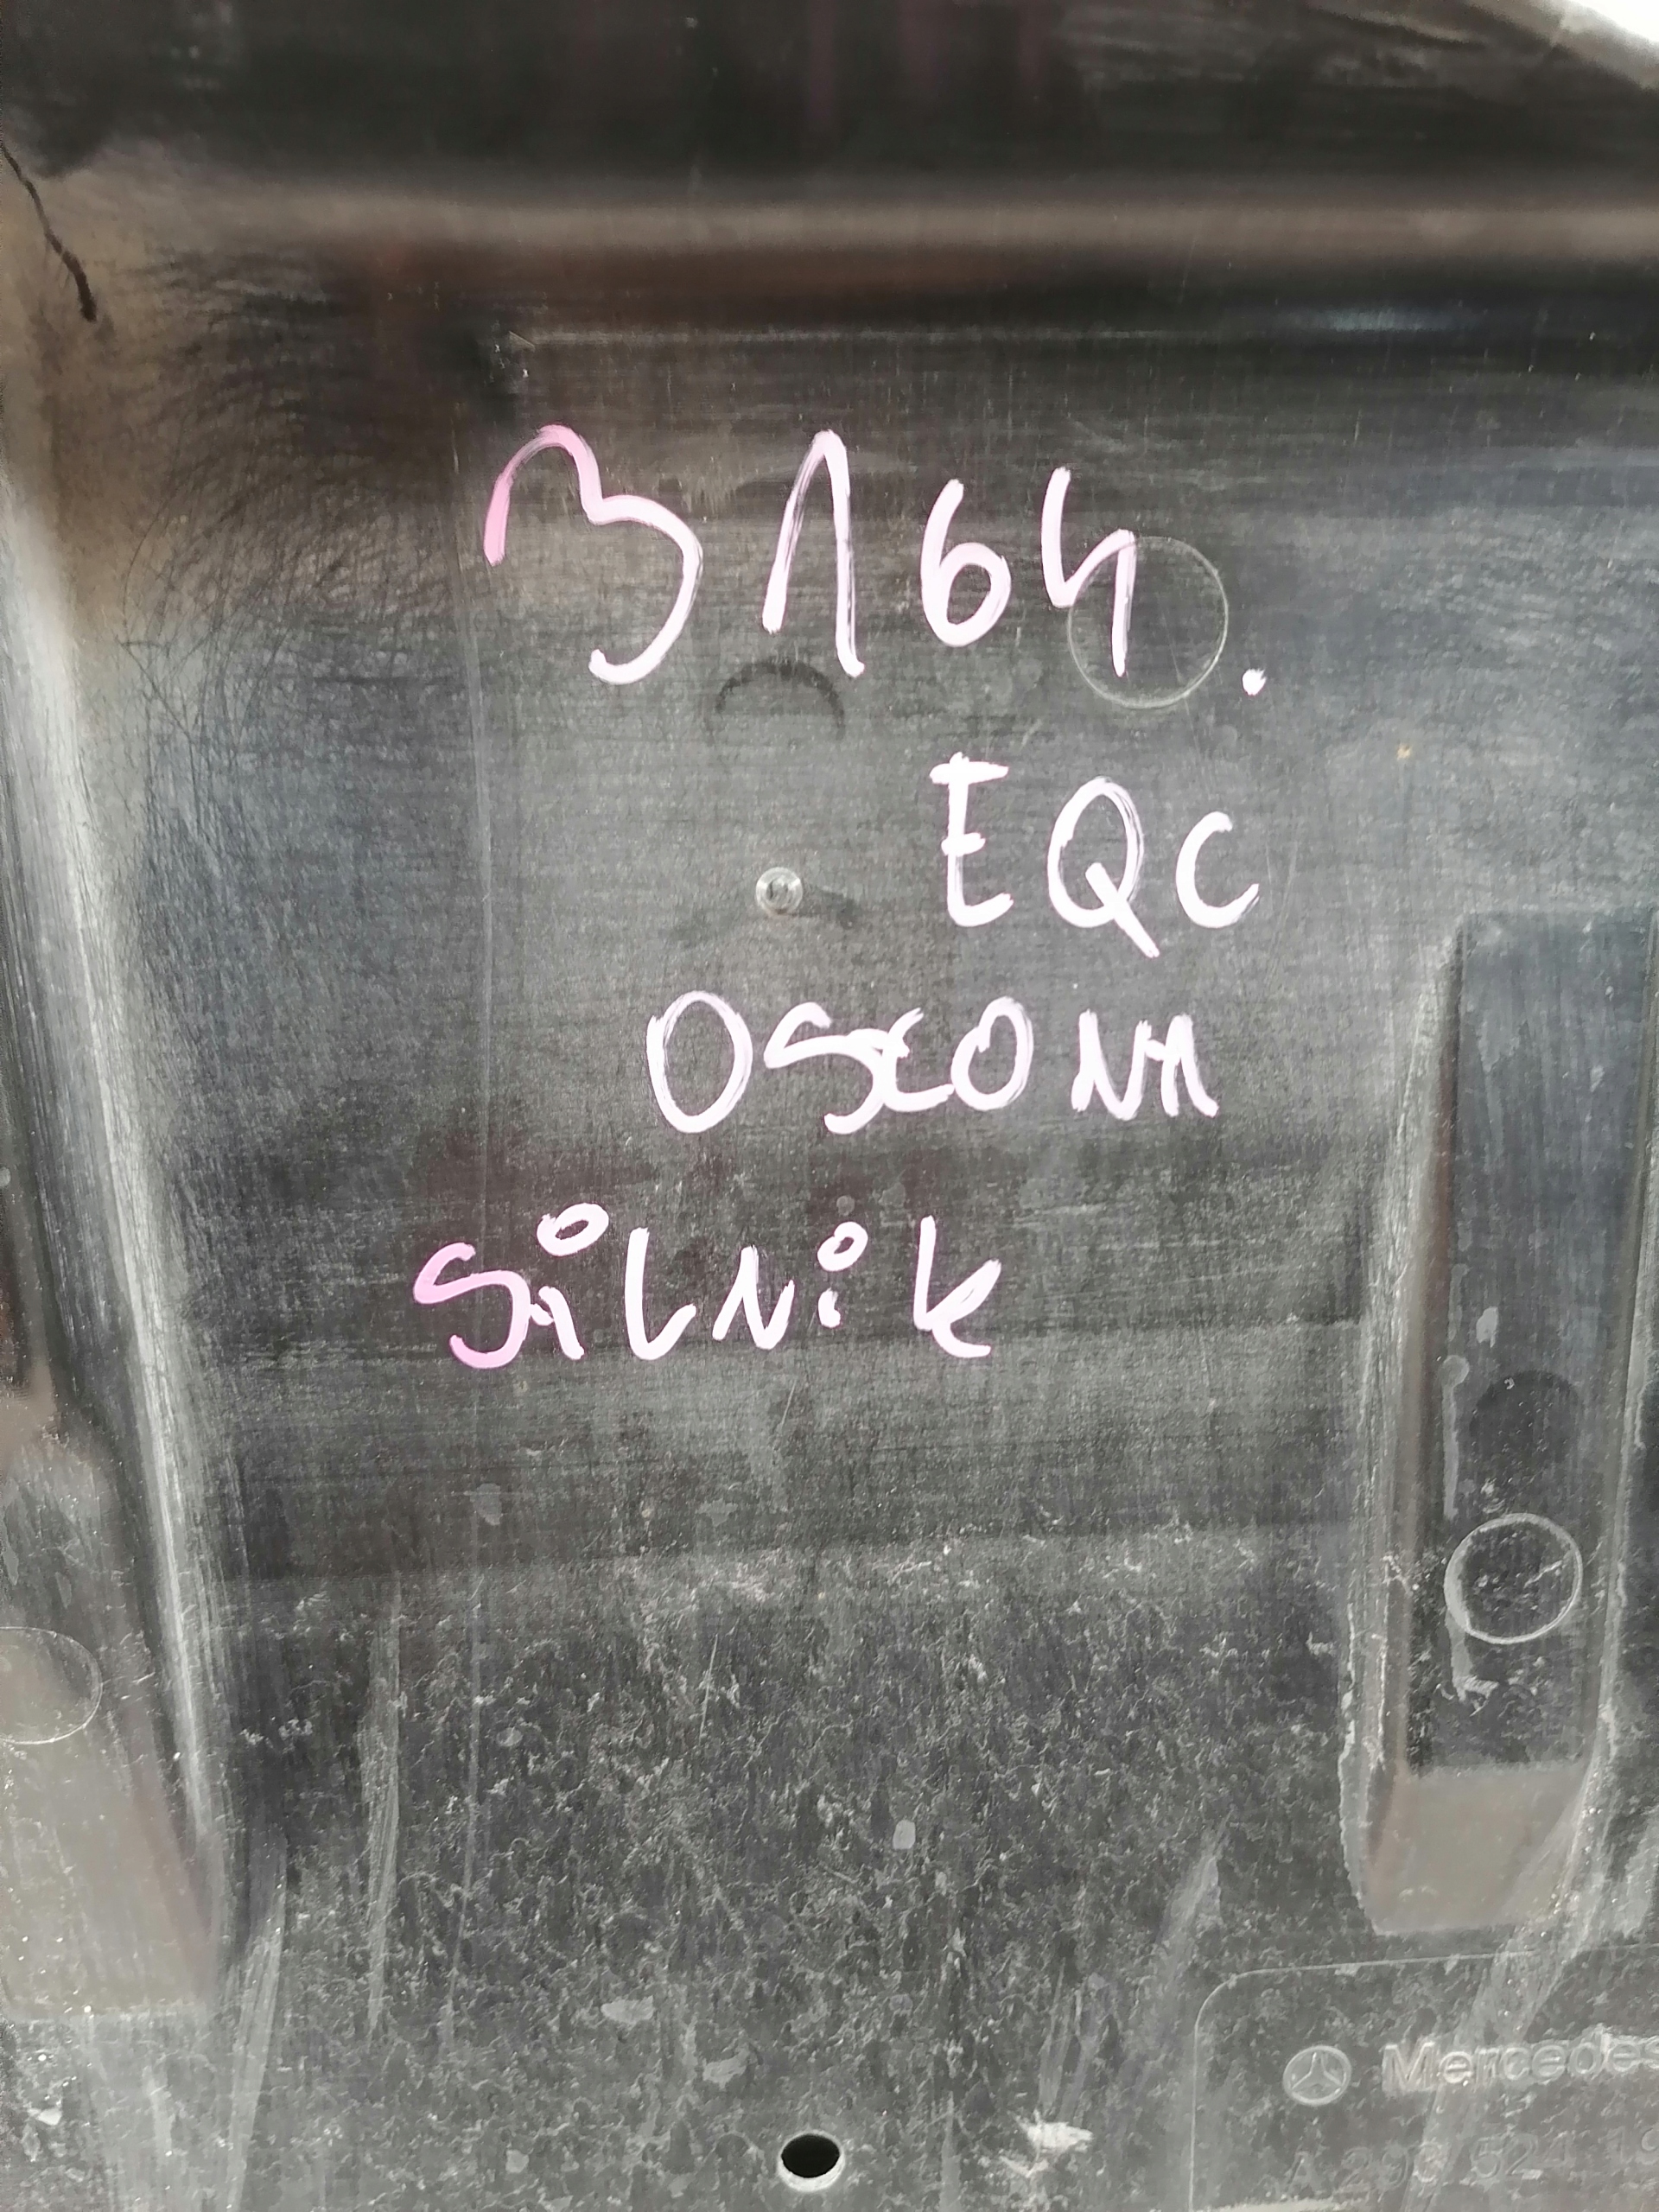 3164.
EQC
OSŁONA
SiLNik
Mercedes
A 293 524 19